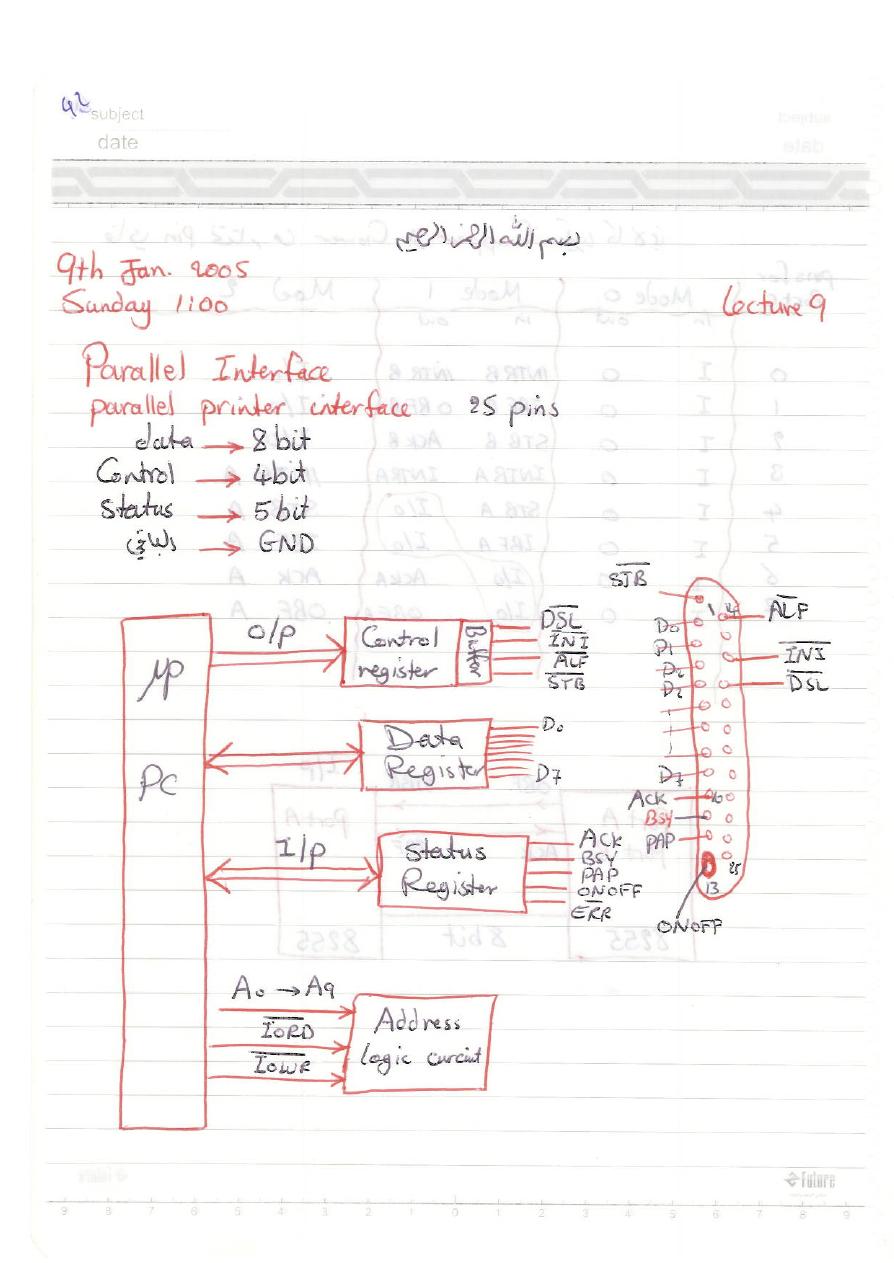 42
subject
date
بسم الله الرحمن الرحيم
9th Jan. 2005
Sunday 1:00
Lecture 9
Parallel Interface
parallel printer interface 25 pins
data → 8 bit
Control → 4bit
Status → 5 bit
الباقي → GND
μp
PC
O/p
Control register
Buffer
D̅S̅L̅
I̅N̅I̅
A̅L̅F̅
S̅T̅B̅
Data Register
D0
D7
I/p
Status Register
ACK
BSY
PAP
ONOFF
E̅R̅R̅
A0 → A9
I̅O̅R̅D̅
I̅O̅W̅R̅
Address logic curcint
S̅T̅B̅
1 14
A̅L̅F̅
D0
D1
I̅N̅I̅
D2
D2
D̅S̅L̅
D7
Ack 10
BSY
PAP
25
13
ONOFF
Future
9 8 7 6 5 4 3 2 1 0 1 2 3 4 5 6 7 8 9